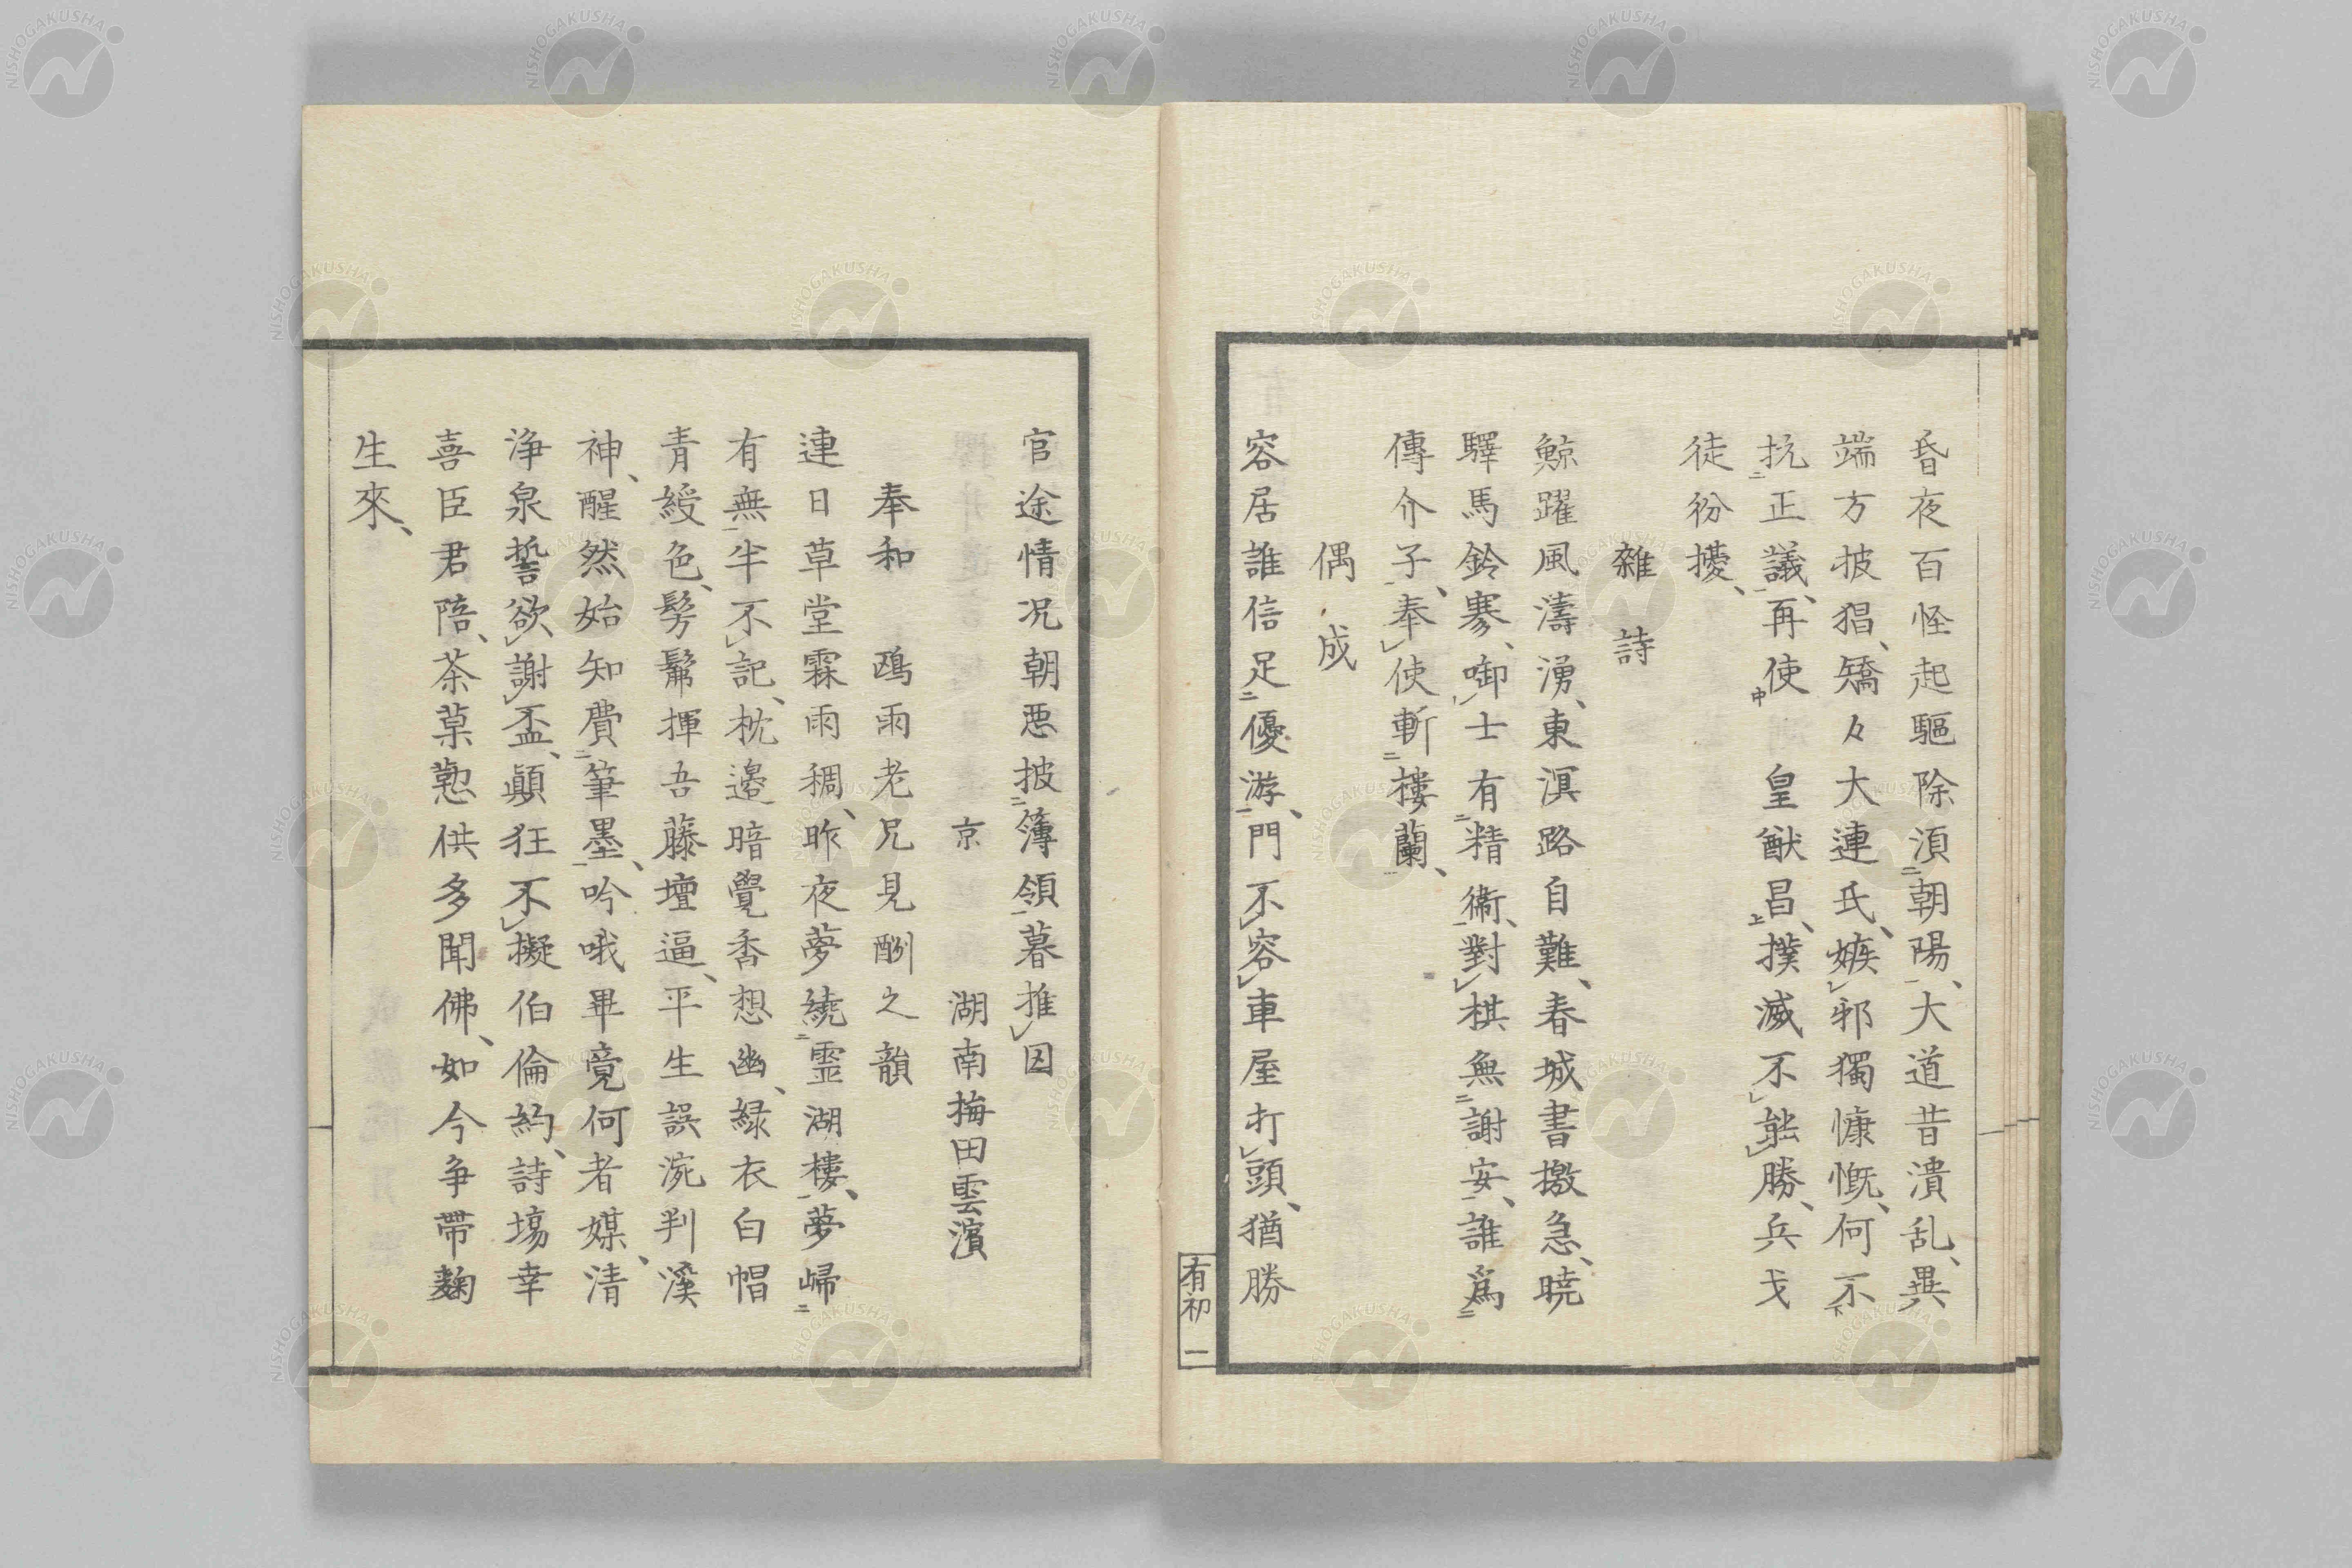 昏夜百怪起驅除湏二朝陽一、大道昔潰乱、異
端方披猖、矯々大連氏、嫉レ邪獨慷慨、何不下
抗二正議一、再使中皇猷昌上、撲滅不レ能レ勝、兵戈
徒紛擾、
雜詩
鯨躍風濤湧、東溟路自難、春城書檄急、暁
驛馬鈴寒、啣レ士有二精衞一、對レ棋無二謝安一、誰爲二
傳介子一、奉レ使斬二樓蘭一、
偶成
容居誰信足二優游一、門不レ容レ車屋打レ頭、猶勝
有初 一
官途情况朝悪披二簿領一暮推レ囚
奉和 鴎雨老兄見酬之韻
京 湖南梅田雲濱
連日草堂霖雨稠、昨夜夢繞二霊湖樓一、夢帰二
有無一半不レ記、枕邉暗覺香想幽、緑衣白帽
青綬色、髣髴揮吾藤壇逼、平生誤涴判溪
神、醒然始知費二筆墨一、吟哦畢竟何者媒、清
浄泉誓欲レ謝レ盃、顛狂不レ擬伯倫約、詩塲幸
喜臣君陪、茶菓懃供多聞佛、如今争帶麹
生來、
NISHOGAKUSHA